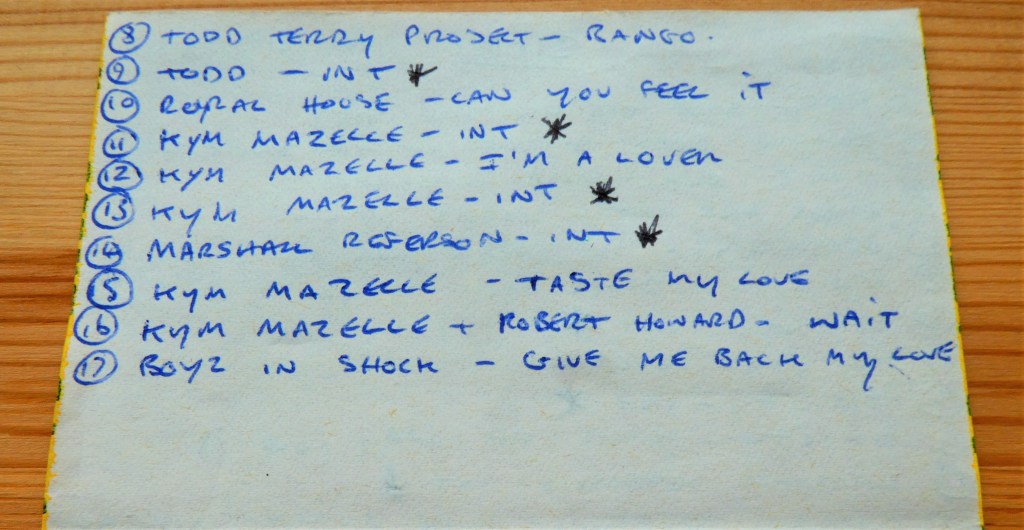 8 TODD TERRY PROJECT - RANGO.
9 TODD - INT *
10 ROYAL HOUSE - CAN YOU FEEL IT
11 KYM MAZELLE - INT *
12 KYM MAZELLE - I'M A LOVER
13 KYM MAZELLE - INT *
14 MARSHALL REFERSON - INT *
15 KYM MAZELLE - TASTE MY LOVE
16 KYM MAZELLE + ROBERT HOWARD - WAIT
17 BOYZ IN SHOCK - GIVE ME BACK MY LOVE